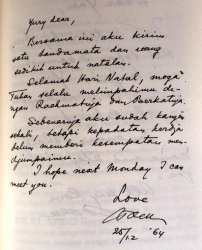 Yury dear,
Bersama ini aku kirim
satu tandamata dan uang
sedikit untuk natalan.
Selamat Hari Natal, moga²
Tuhan selalu melimpahimu de-
ngan Rachmatnja dan Berkatnja.
Sebenarnja aku sudah kangen
sekali, tetapi kepadatan kerdja
belum memberi kesempatan men-
djumpaimu.
I hope next Monday I can
meet you.
Love
25/12 '64